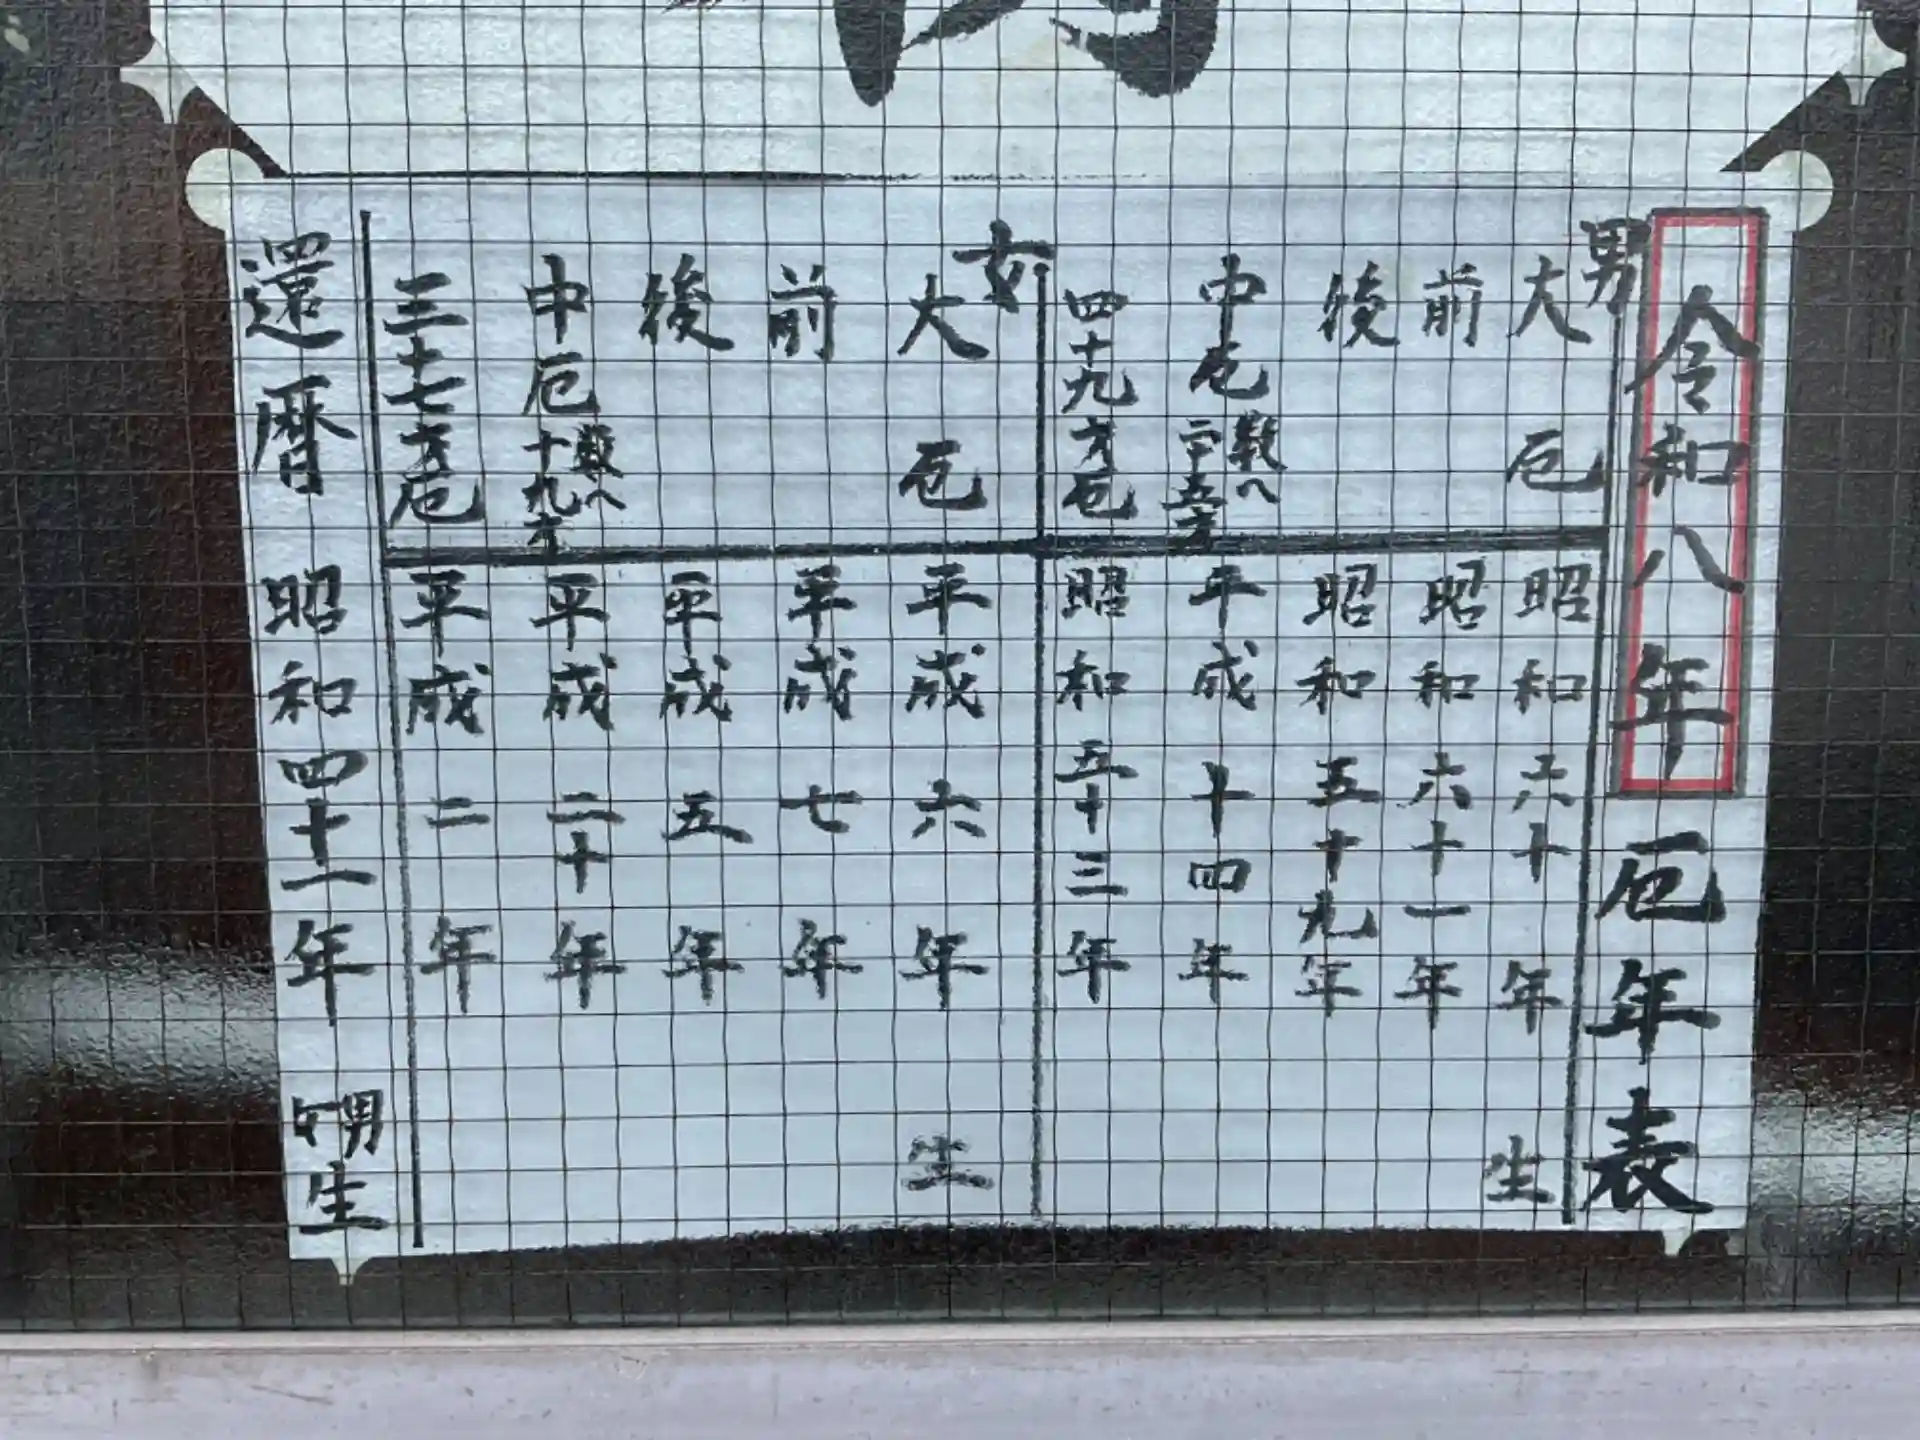 令和八年厄年表
男
大厄 昭和六十年生
前 昭和六十一年
後 昭和五十九年
中厄 数へ二十五才 平成十四年
四十九才厄 昭和五十三年
女
大厄 平成六年生
前 平成七年
後 平成五年
中厄 数へ十九才 平成二十年
三十七才厄 平成二年
還暦 昭和四十一年 男女生